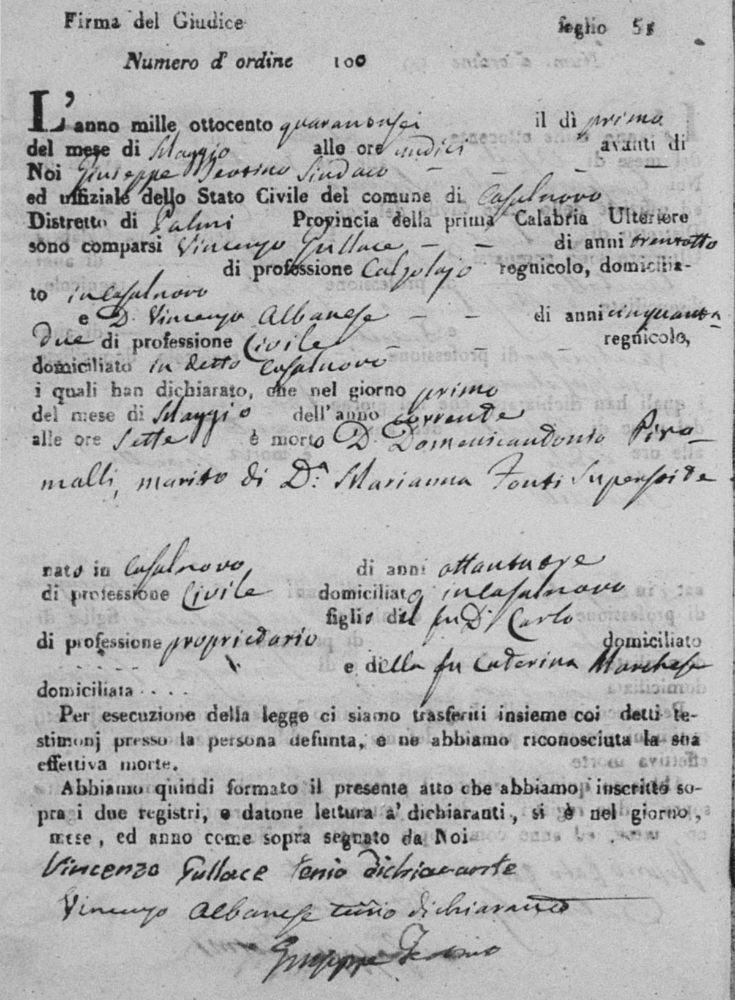 Firma del Giudice foglio 51
Numero d' ordine 100
L'anno mille ottocento quarantasei il dì primo
del mese di Maggio alle ore undici avanti di
Noi Giuseppe Sindaco
ed uffiziale dello Stato Civile del comune di Casalnovo
Distretto di Palmi Provincia della prima Calabria Ulteriore
sono comparsi Vincenzo Gullace di anni trentotto
di professione Calzolajo regnicolo, domicilia-
to in Casalnovo
e D. Vincenzo Albanese di anni cinquanta
due di professione Civile regnicolo,
domiciliato in detto Casalnovo
i quali han dichiarato, che nel giorno primo
del mese di Maggio dell'anno corrente
alle ore sette è morto D. Domenicantonio Piro-
malli, marito di D.ª Marianna Fonti Superstite
nato in Casalnovo di anni
di professione Civile domiciliato in Casalnovo
figlio del fu D. Carlo
di professione proprietario domiciliato
. . . . . e della fu Caterina Marchese
domiciliata . . . .
Per esecuzione della legge ci siamo trasferiti insieme coi detti te-
stimonj presso la persona defunta, e ne abbiamo riconosciuta la sua
effettiva morte.
Abbiamo quindi formato il presente atto che abbiamo inscritto so-
pra i due registri, e datone lettura a' dichiaranti, si è nel giorno,
mese, ed anno come sopra segnato da Noi
Vincenzo Gullace dichiarante
Vincenzo Albanese dichiarante
Giuseppe